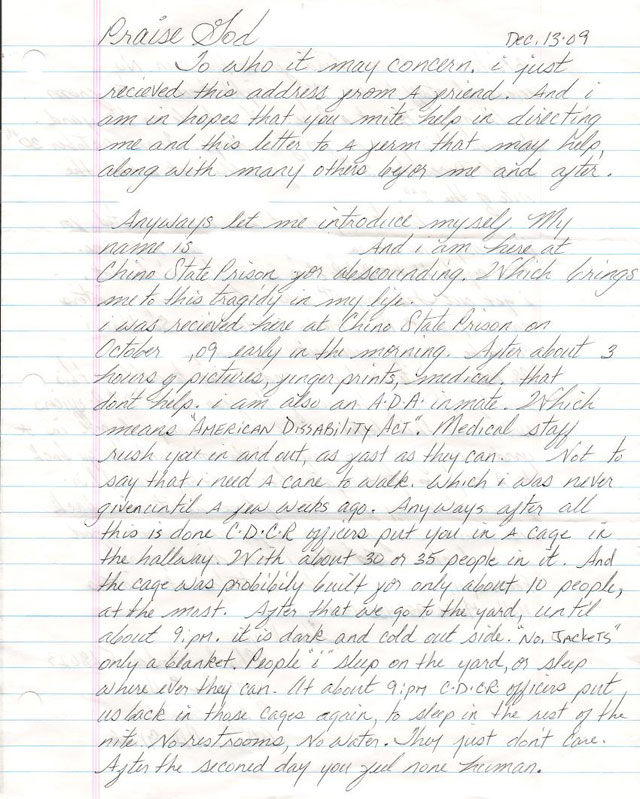 Praise God
Dec. 13.09
To who it may concern. i just
recieved this address from A friend. And i
am in hopes that you mite help in directing
me and this letter to A ferm that may help,
along with many others befor me and after.
Anyways let me introduce myself My
name is And i am here at
Chino State Prison for abscounding. Which brings
me to this tragidy in my life.
i was recieved here at Chino State Prison on
October ,09 early in the morning. After about 3
hours of pictures, finger prints, medical. that
dont help. i am also an A.D.A. inmate. Which
means "AMERICAN DISSABILITY ACT". Medical staff
rush you in and out, as fast as they can. Not to
say that i need A cane to walk. Which i was never
given until A few weeks ago. Anyways after all
this is done C.D.C.R officers put you in A cage in
the hallway. With about 30 or 35 people in it. And
the cage was probibily built for only about 10 people,
at the most. After that we go to the yard, until
about 9:pm. it is dark and cold out side. "No. JACKETS"
only a blanket. People "i" sleep on the yard, or sleep
where ever they can. At about 9:pm C.D.C.R officers put
us back in those cages again, to sleep in the rest of the
nite. No restrooms, No water. They just don't care.
After the seconed day you feel none human.